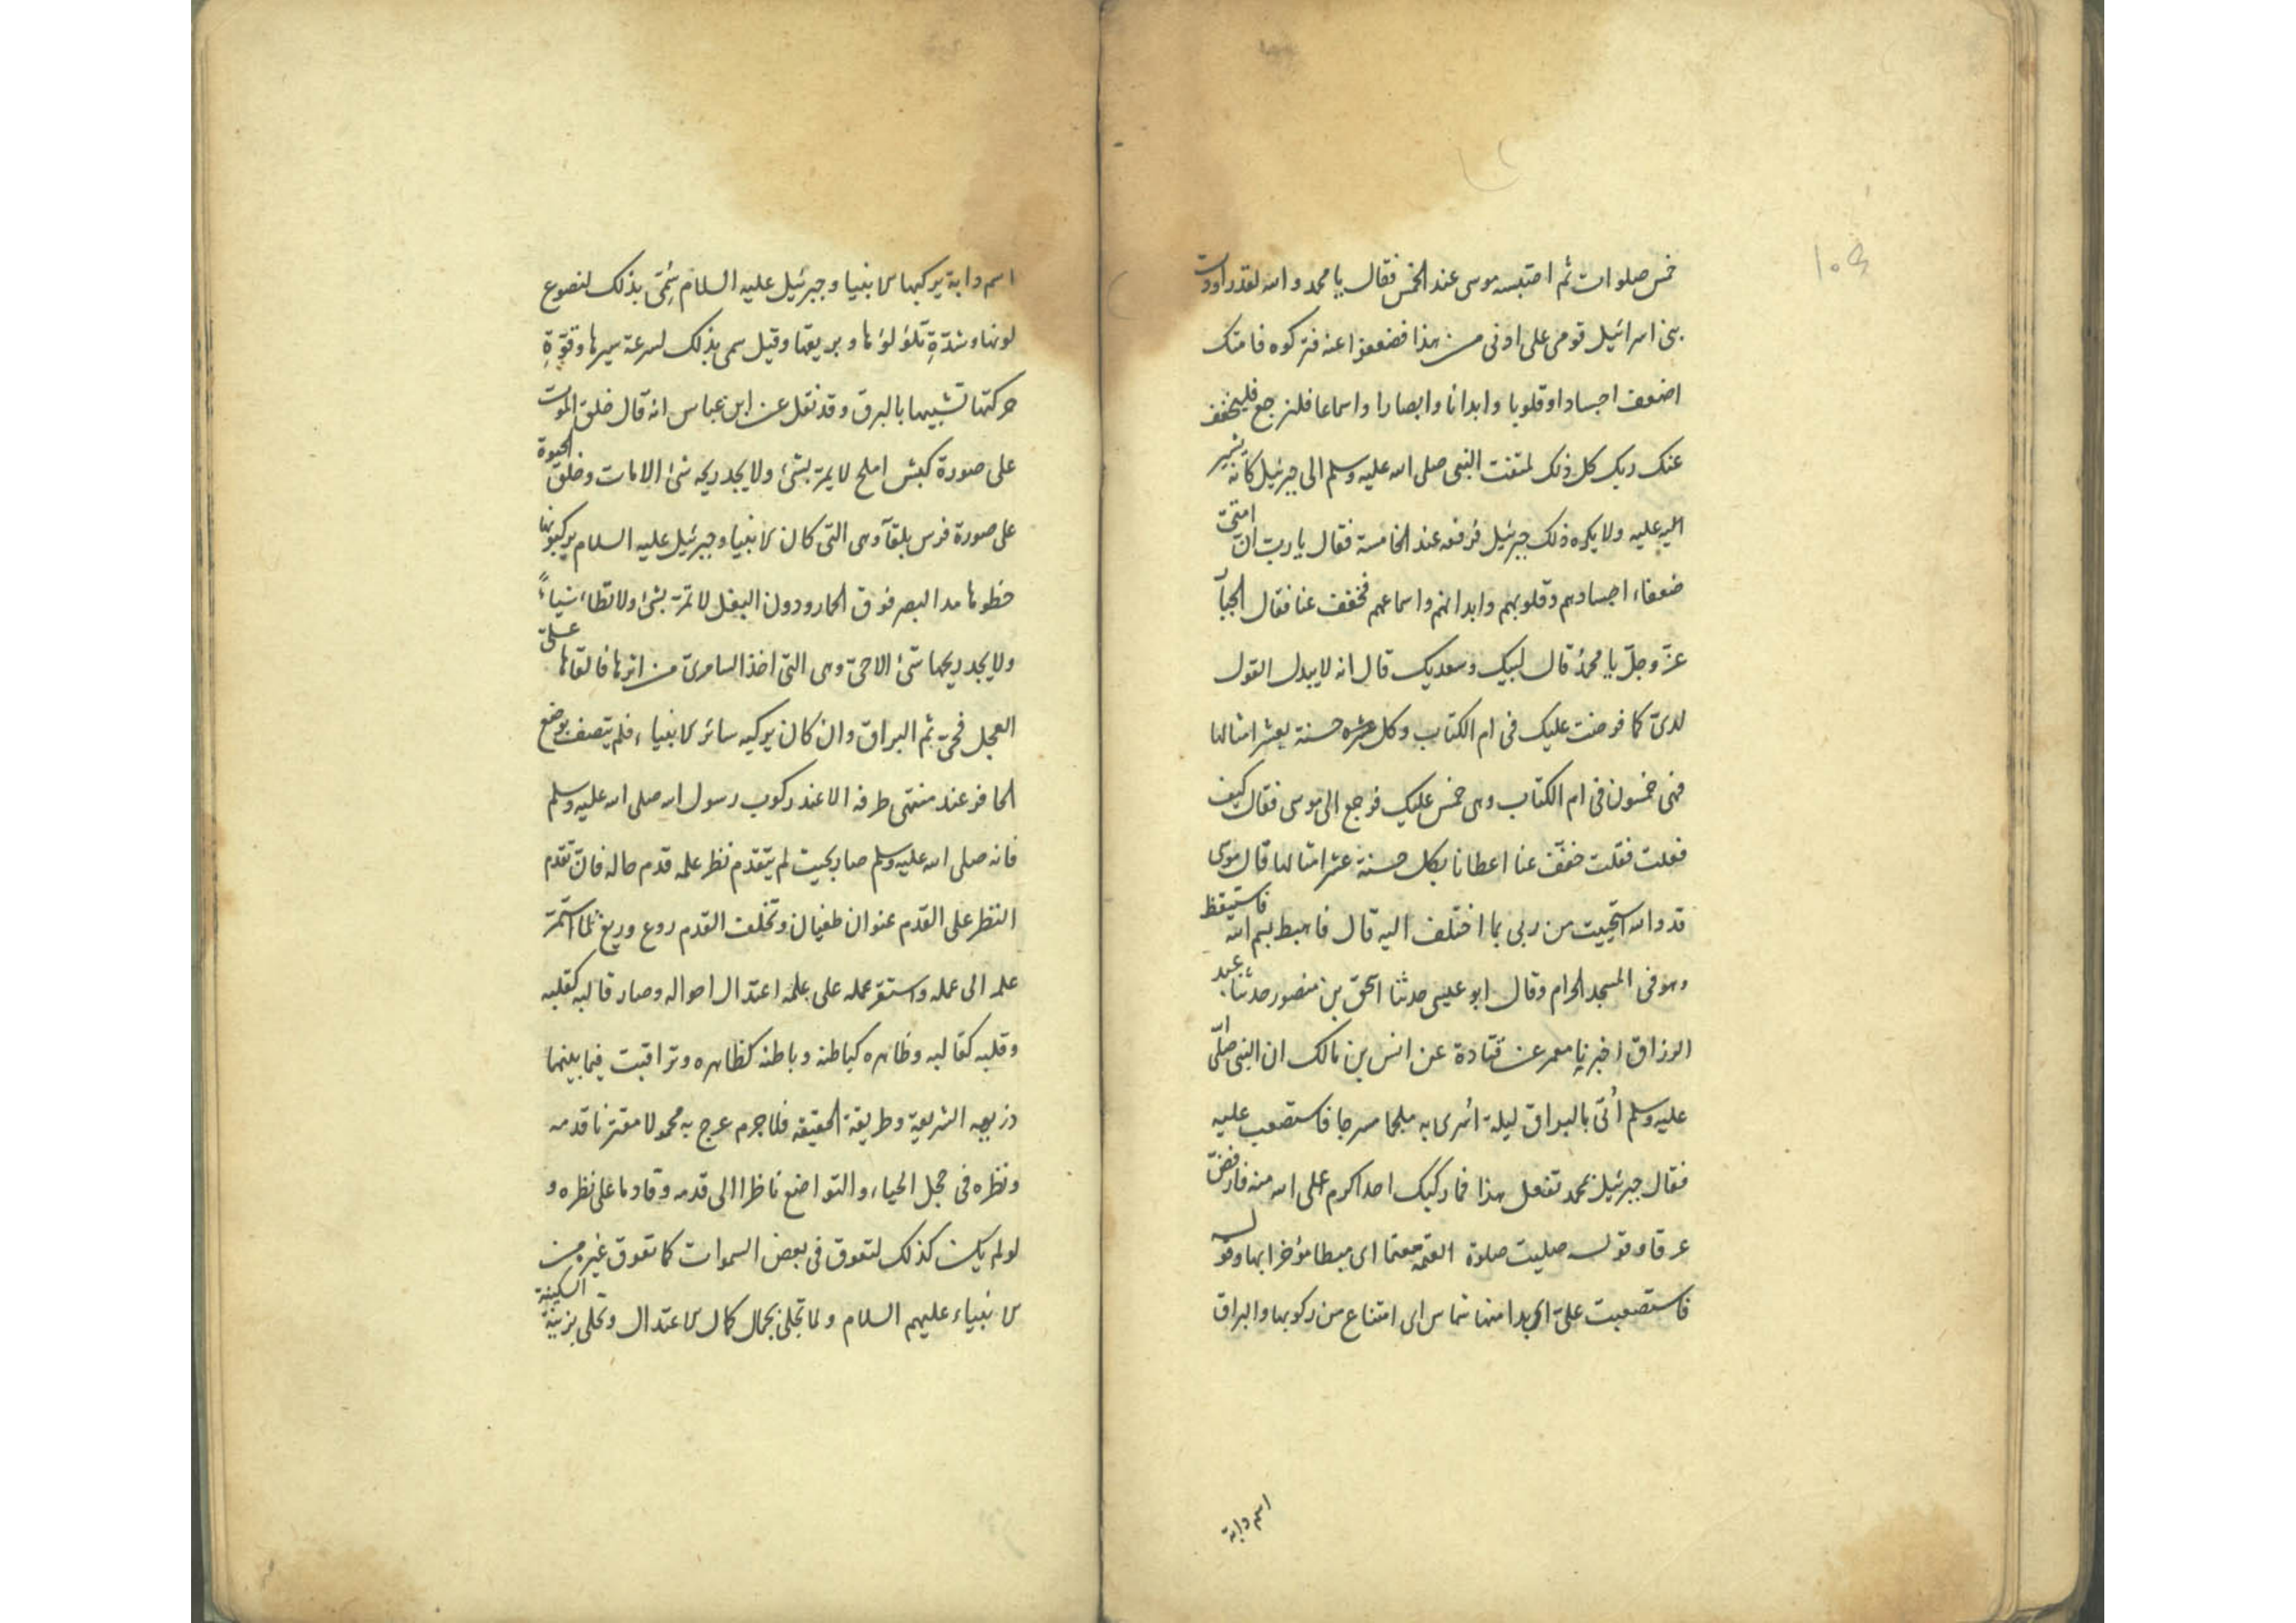 خمس صلوات ثم احتبسه موسى عند الخمس فقال يا محمد والله لقد راودت
بنى اسرائيل قومى على ادنى من هذا فضعفوا عنه فتركوه فامتك
اضعف اجسادا وقلوبا وابدانا وابصارا واسماعا فلترجع فليخفف
عنك ربك كل ذلك لمتفت النبى صلى الله عليه وسلم الى جبرئيل كانه يشير
اليه عليه ولا يكره ذلك جبرئيل فرفعه عند الخامسة فقال يا رب ان امتى
ضعفاء اجسادهم وقلوبهم وابدانهم واسماعهم فخفف عنا فقال الجبار
عز وجل يا محمد قال لبيك وسعديك قال انه لا يبدل القول
لدى كما فرضت عليك فى ام الكتاب وكل حسنة بعشر امثالها
فهى خمسون فى ام الكتاب وهى خمس عليك فرجع الى موسى فقال كيف
فعلت فقلت خفف عنا اعطانا بكل حسنة عشر امثالها قال موسى
قد والله استحييت من ربى مما اختلف اليه قال فاهبط بسم الله فاستيقظ
وهو فى المسجد الحرام وقال ابو عيسى حدثنا اسحق بن منصور حدثنا عبد
الرزاق اخبرنا معمر عن قتادة عن انس بن مالك ان النبى صلى الله
عليه وسلم أتى بالبراق ليلة أسرى به ملجما مسرجا فاستصعب عليه
فقال جبرئيل بمحمد تفعل هذا فما ركبك احد اكرم على الله منه فارفض
عرقا وقوله صليت صلوة العتمة معتما اى مبطا مؤخرا بها وقوله
فاستصعبت على اى بدا منها شماس اى امتناع من ركوبها والبراق
اسم دابة
اسم دابة يركبها الانبيا وجبرئيل عليه السلام سمى بذلك لنصوع
لونها وشدة تلؤلؤها وبريقها وقيل سمى بذلك لسرعة سيرها وقوة
حركتها تشبيها بالبرق وقد نقل عن ابن عباس انه قال خلق الموت
على صورة كبش املح لا يمر بشئ ولا يجد ريحه شئ الا مات وخلق الحيوة
على صورة فرس بلقآ وهى التى كان الانبيا وجبرئيل عليه السلام يركبونها
خطوها مد البصر فوق الحمار ودون البغل لا تمر بشئ ولا تطاء شياء
ولا يجد ريحها شئ الا حى وهى التى اخذ السامرى من اثرها فالقاها على
العجل فحى ثم البراق وان كان يركبه سائر الانبياء فلم يتصف بوضع
الحافر عند منتهى طرفه الا عند ركوب رسول الله صلى الله عليه وسلم
فانه صلى الله عليه وسلم صار بحيث لم يتقدم نظر علمه قدم حاله فان تقدم
النظر على القدم عنوان طغيان وتخلف القدم روع وريغ لما استمر
علمه الى عمله واستقر عمله على علمه اعتدال احواله وصار قالبه كقلبه
وقلبه كقالبه وظاهره كباطنه وباطنه كظاهره وتراقبت فيما بينهما
الشريعة وطريقة الحقيقة فلا جرم عرج به محمولا مقترنا قدمه
ونظره فى حجل الحياء والتواضع ناظرا الى قدمه وقادما على نظره و
لو لم يكن كذلك لتعوق فى بعض السموات كما تعوق غيره من
الانبياء عليهم السلام ولما تجلى بجمال كمال الاعتدال وتحلى بزينة السكينة